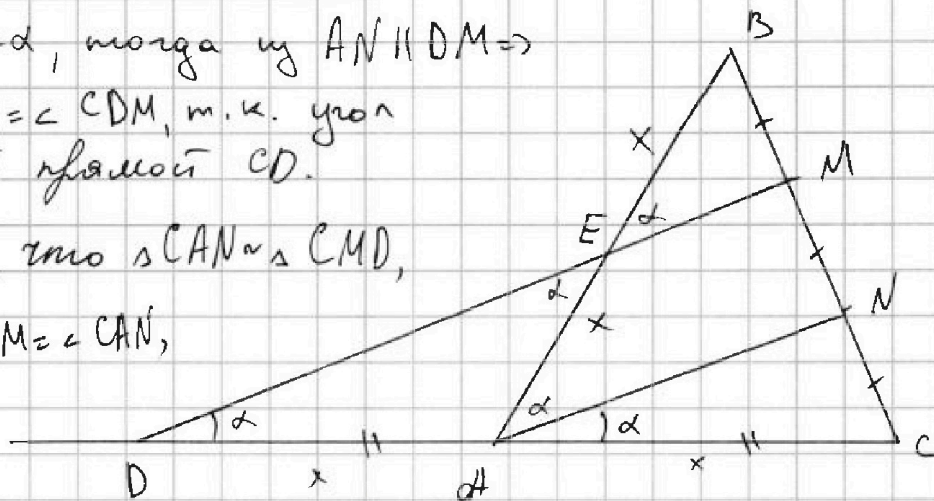 α, тогда из AN || DM =>
=∠ CDM, т.к. угол
прямой CD.
что ΔCAN ~ Δ CMD,
M = ∠ CAN,
B
x
M
E α
α
x
N
α
α
α
D
x
A
x
C